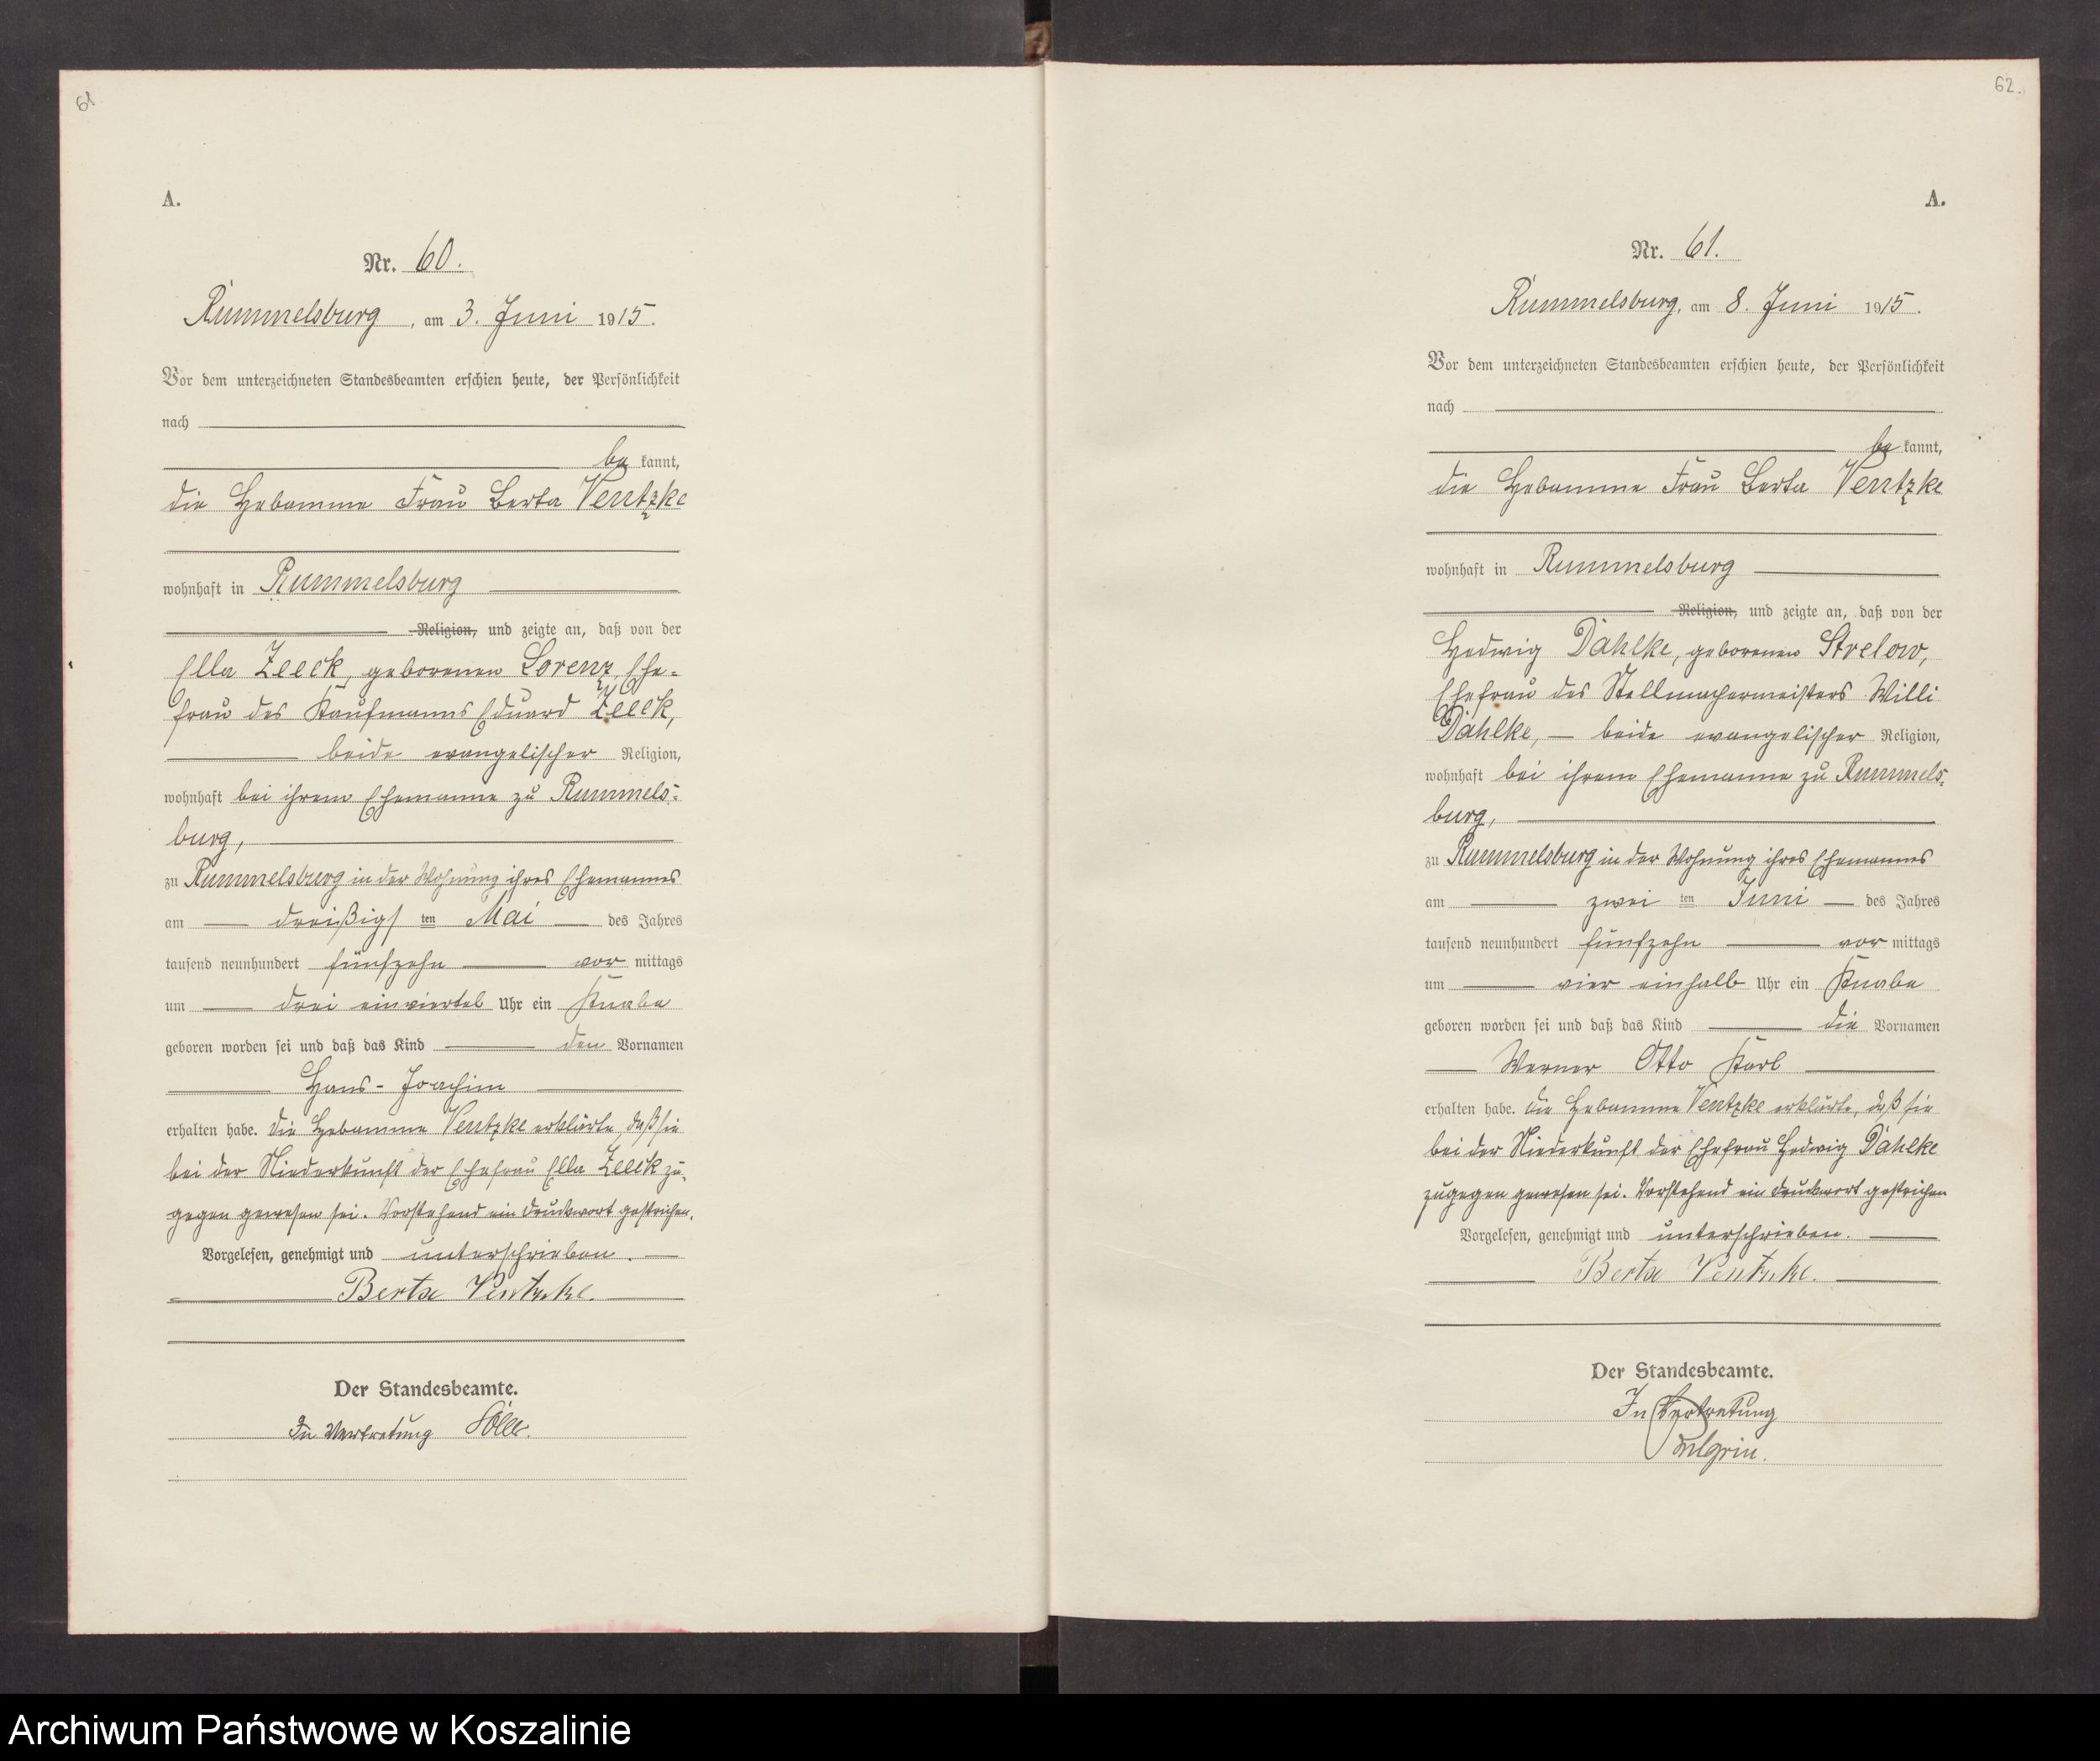 61
A.
Nr. 60.
Rummelsburg, am 3. Juni 1915.
Vor dem unterzeichneten Standesbeamten erschien heute, der Persönlichkeit
nach
be kannt,
die Hebamme Frau Berta Ventzke
wohnhaft in Rummelsburg
Religion, und zeigte an, daß von der
Ella Zeeck, geborenen Lorenz, Ehe-
frau des Kaufmanns Eduard Zeeck,
beide evangelischer Religion,
wohnhaft bei ihrem Ehemanne zu Rummels-
burg,
zu Rummelsburg in der Wohnung ihres Ehemannes
am dreißigs ten Mai des Jahres
tausend neunhundert fünfzehn vor mittags
um drei einviertel Uhr ein Knabe
geboren worden sei und daß das Kind den Vornamen
Hans-Joachim
erhalten habe. Die Hebamme Ventzke erklärte, daß sie
bei der Niederkunft der Ehefrau Ella Zeeck zu-
gegen gewesen sei. Vorstehend ein Druckwort gestrichen.
Vorgelesen, genehmigt und unterschrieben.
Berta Ventzke.
Der Standesbeamte.
In Vertretung
62.
A.
Nr. 61.
Rummelsburg, am 8. Juni 1915.
Vor dem unterzeichneten Standesbeamten erschien heute, der Persönlichkeit
nach
be kannt,
die Hebamme Frau Berta Ventzke
wohnhaft in Rummelsburg
Religion, und zeigte an, daß von der
Hedwig Dahlke, geborenen Strelow,
Ehefrau des Stellmachermeisters Willi
Dahlke, beide evangelischer Religion,
wohnhaft bei ihrem Ehemanne zu Rummels-
burg,
zu Rummelsburg in der Wohnung ihres Ehemannes
am zwei ten Juni des Jahres
tausend neunhundert fünfzehn vor mittags
um vier einhalb Uhr ein Knabe
geboren worden sei und daß das Kind die Vornamen
Werner Otto Karl
erhalten habe. Die Hebamme Ventzke erklärte, daß sie
bei der Niederkunft der Ehefrau Hedwig Dahlke
zugegen gewesen sei. Vorstehend ein Druckwort gestrichen
Vorgelesen, genehmigt und unterschrieben.
Berta Ventzke.
Der Standesbeamte.
In Vertretung
Archiwum Państwowe w Koszalinie